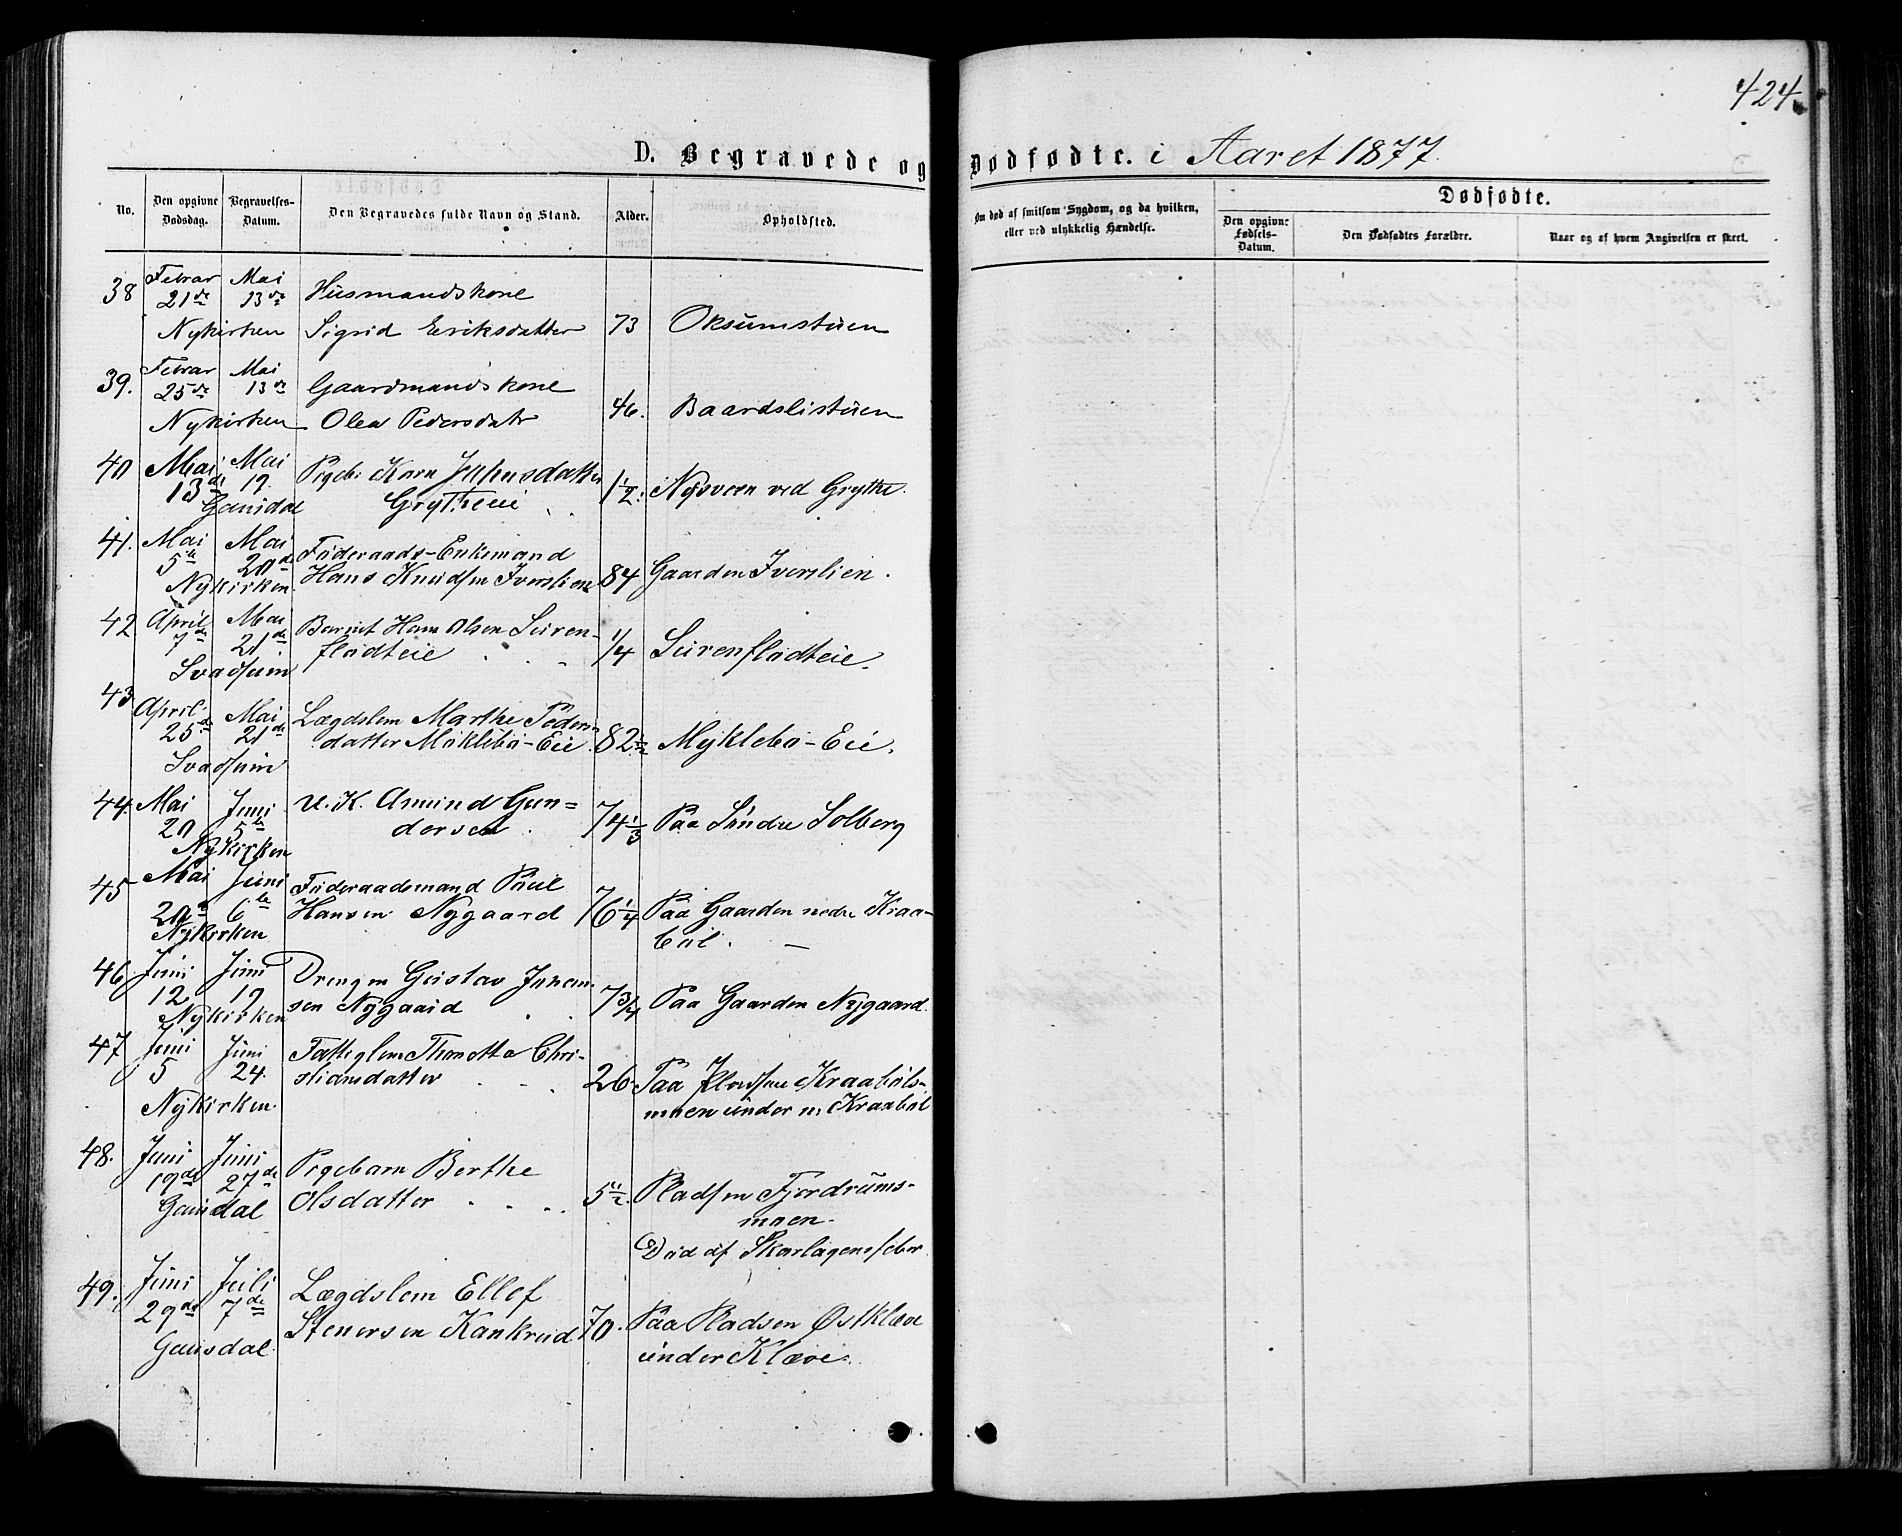 424.
D. Begravede og Dødfødte. i Aaret 1877.
No.
Den opgivne Dødsdag.
Begravelses-Datum.
Den Begravedes fulde Navn og Stand.
Alder.
Opholdsted.
Om død af smitsom Sygdom, og da hvilken, eller ved ulykkelig Hændelse.
Dødfødte.
Den opgivne Fødsels-Datum.
Den Dødfødtes Forældre.
Naar og af hvem Angivelsen er skeet.
38 Febrar 21de Mai 13de Husmandskone
Nykirken Sigrid Eriksdatter 73 Oksumstuen
39. Febrar 25de Mai 13de Gaardmandskone
Nykirken Olea Pedersdatr 46. Baardslistuen
40 Mai 13de Mai 19. Pigeb: Karn Johnsdatter
Gausdal Grytheeie 1½. Nysveen ved Grythe.
41. Mai 5te Mai 20de Føderaads-Enkemand
Nykirken Hans Knudsen Iverslien 84 Gaarden Iverslien.
42 April 7de Mai 21de Barnet Hans Olsen Seiren-
Svadsum flodteie 1/4 Seirenflodteie.
43 April 25de Mai 21de Lægdslem Marthe Peders-
datter Møklebø-Eie 82½ Myklebø-Eie.
Svadsum
44. Mai 20 Juni 5te U. K. Amund Gun=
Nykirken dersen 74⅓ Paa Søndre Solberg
45 Mai 29de Juni 6te Føderaadsmand Poul
Hansen Nygaard 76¼ Paa Gaarden nedre Kraa-
Nykirken bøl.
46 Juni 12 Juni 19 Drengen Gustav Johan-
Nykirken sen Nygaard 7¾ Paa Gaarden Nygaard.
47 Juni 5 Juni 24. Fattiglem Thonetta Chri-
stiansdatter 26 Paa Pladsen Kraabøls-
Nykirken. moen under n. Kraabøl
48. Juni 19de Juni 27de Pigebarn Berthe
Gausdal Olsdatter 5½. Pladsen Fjordrums-
moen.
Død af Skarlagensfeber
49. Juni 29de Juli 7de Lægdslem Ellef
Stenersen Kankrud 70. Paa Pladsen Østklæve
Gausdal under Klæve.